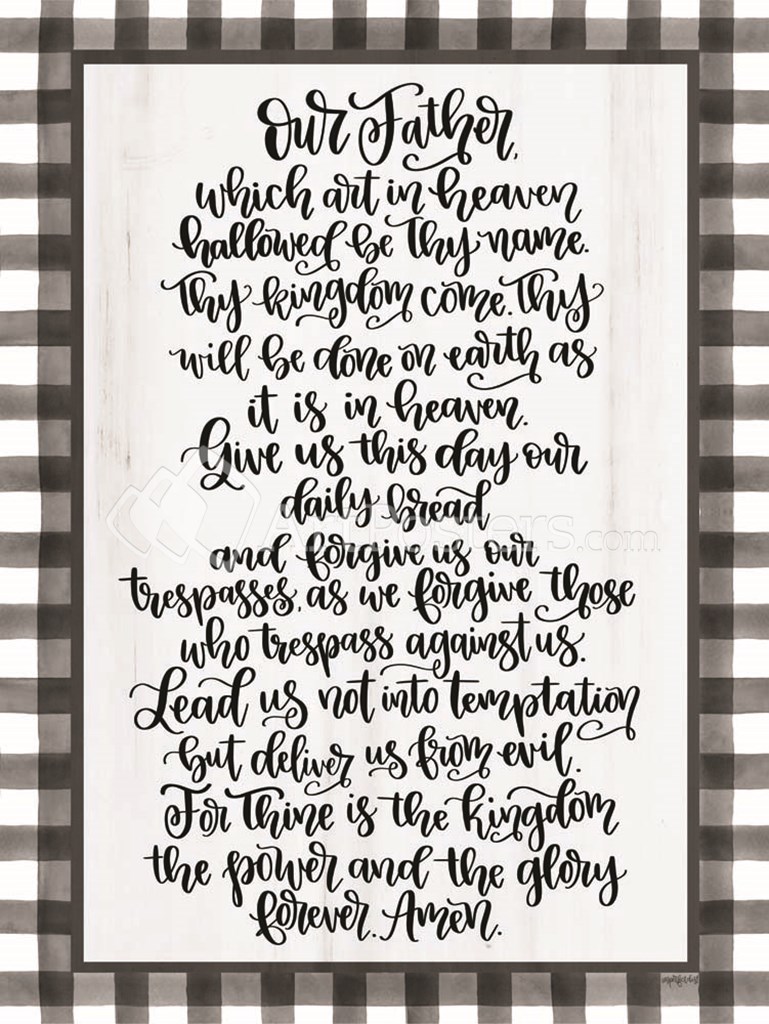 Our Father,
which art in heaven
hallowed be Thy name.
Thy kingdom come. Thy
will be done on earth as
it is in heaven.
Give us this day our
daily bread
ArtPosters.com
and forgive us our
trespasses, as we forgive those
who trespass against us.
Lead us not into temptation
but deliver us from evil.
For Thine is the kingdom
the power and the glory
forever. Amen.